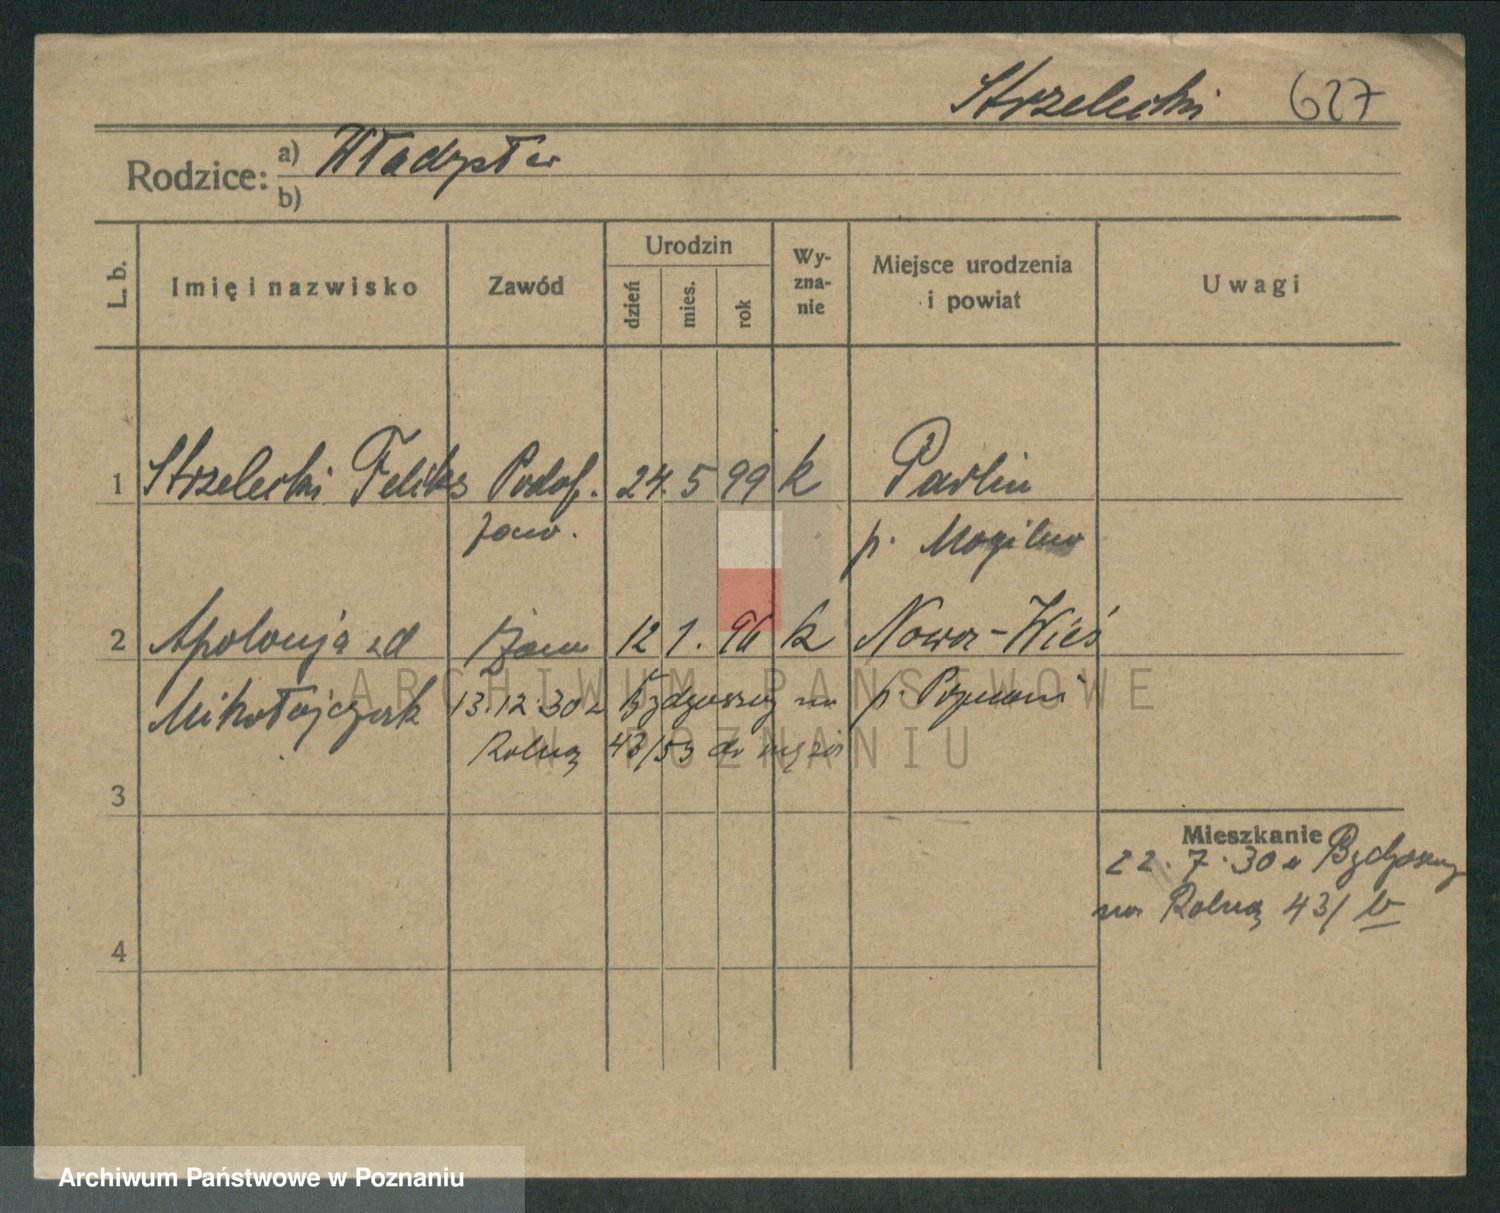 Strzelecki 627
Rodzice: a) Władysław
b)
L. b.
Imię i nazwisko
Zawód
Urodzin
dzień
mies.
rok
Wy-
zna-
nie
Miejsce urodzenia
i powiat
Uwagi
1 Strzelecki Feliks Podof. 24. 5 99 k Parlin
zaw. p. Mogilno
2 Apolonja zd 12 1. 96 k Nowa-Wieś
Mikołajczak 13.12.30 z Bydgoszczy na p. Poznań
Rolną 43/53 do męża
3
Mieszkanie
22.7.30 z Bydgoszczy
na Rolną 43/
4
ARCHIWUM PAŃSTWOWE
W POZNANIU
Archiwum Państwowe w Poznaniu